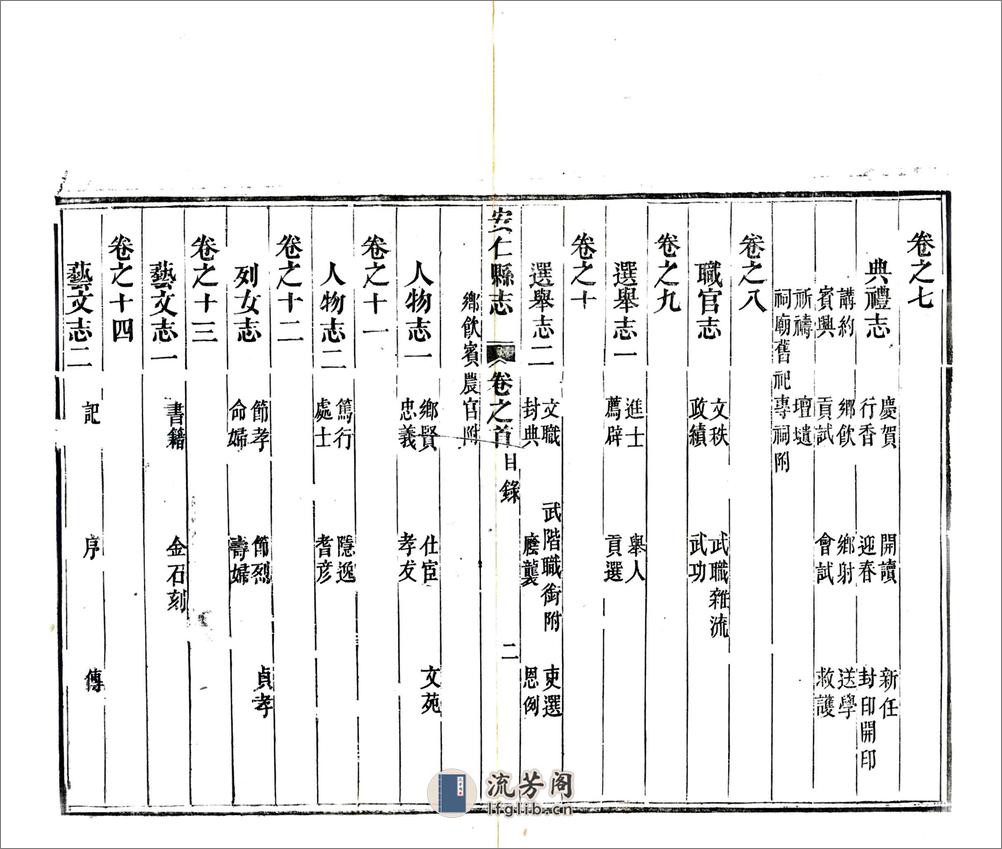 卷之七
典禮志
慶賀 開讀 新任
行香 迎春 封印開印
講約 鄉飲 鄉射 送學
賓興 貢試 會試 救護
祈禱 壇壝
祠廟舊祀專祠附
卷之八
職官志
文秩 武職雜流
政績 武功
卷之九
選舉志一
進士 舉人
薦辟 貢選
卷之十
選舉志二
文職 武階職銜附 吏選
封典 廕襲 恩例
安仁縣志 卷之首 目錄 二
鄉飲賓農官附
人物志一
鄉賢 仕宦 文苑
忠義 孝友
卷之十一
人物志二
篤行 隱逸
處士 耆彥
卷之十二
列女志
節孝 節烈 貞孝
命婦 壽婦
卷之十三
藝文志一
書籍 金石刻
卷之十四
藝文志二
記 序 傳
流芳阁
lfglib.cn